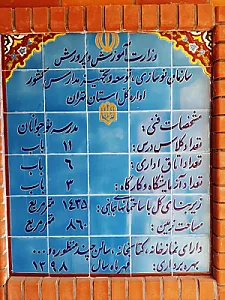 وزارت آموزش و پرورش
سازمان نوسازی، توسعه و تجهیز مدارس کشور
اداره کل استان تهران
مشخصات فنی: مدرسه نوجوانان
تعداد کلاس درس: ۱۱ باب
تعداد اتاق اداری: ۶ باب
تعداد آزمایشگاه و کارگاه: ۳ باب
زیربنای کل با ساختمانهای جانبی: ۱۴۳۵ مترمربع
مساحت زمین: ۸۶۰ مترمربع
دارای نمازخانه، کتابخانه، سالن چندمنظوره و...
بهره برداری: مهرماه سال ۱۳۹۸